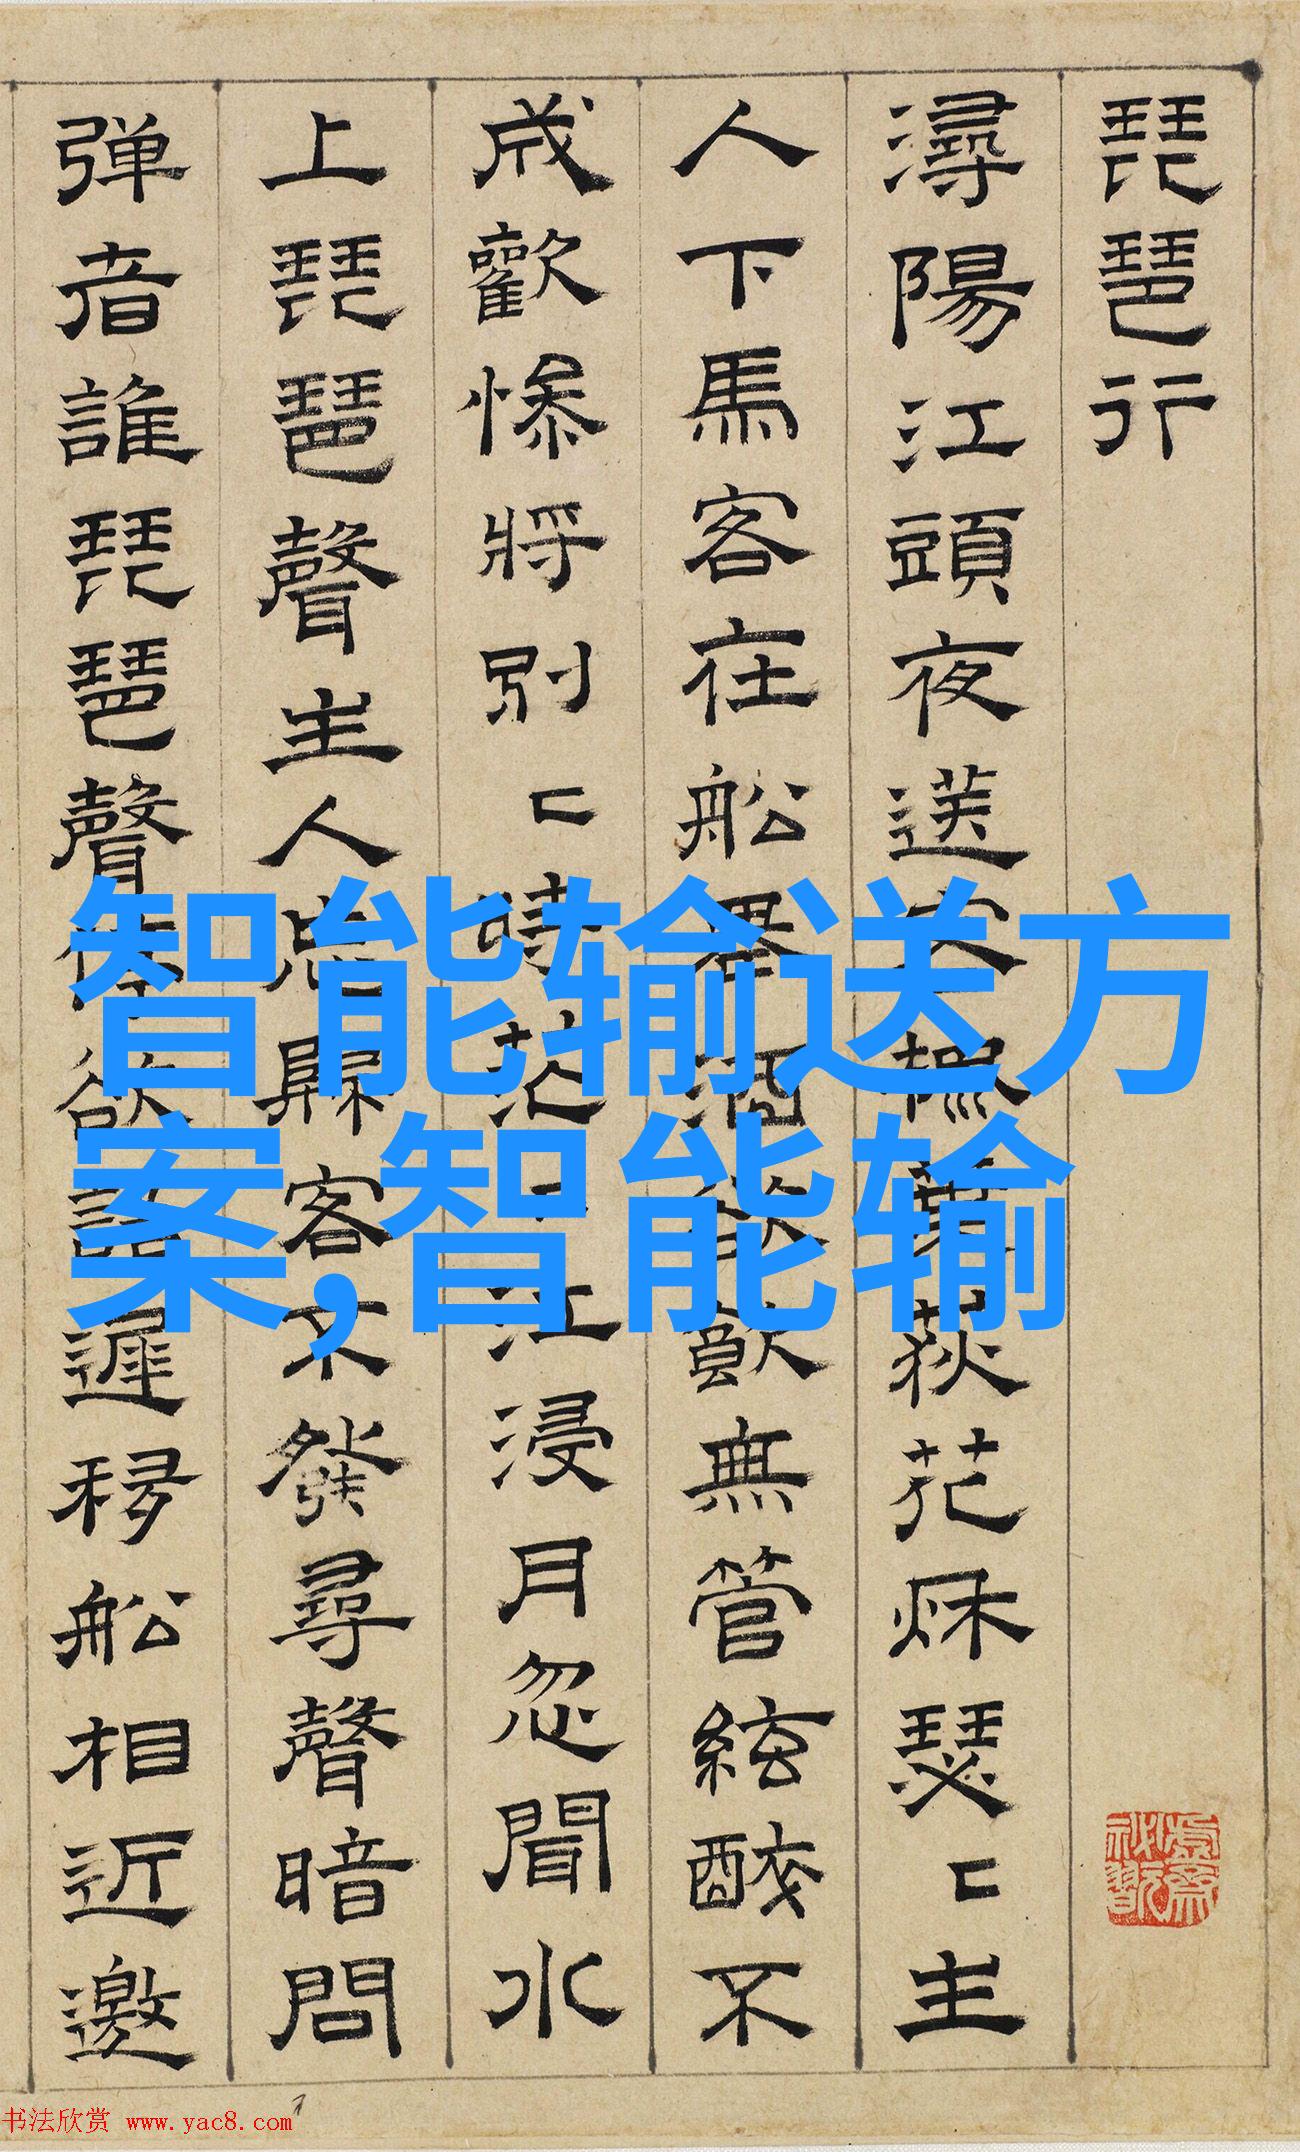 琵琶行
潯陽江頭夜送客楓葉荻花秌瑟〻主
人下馬客在船舉酒欲飲無管絃醉不
成歡慘將別〻時茫〻江浸月忽聞水
上琵琶聲主人忘歸客不發尋聲暗問
弹者誰琵琶聲停欲語遲移船相近邀
智能输送方
案,智能输
书法欣赏 www.yac8.com